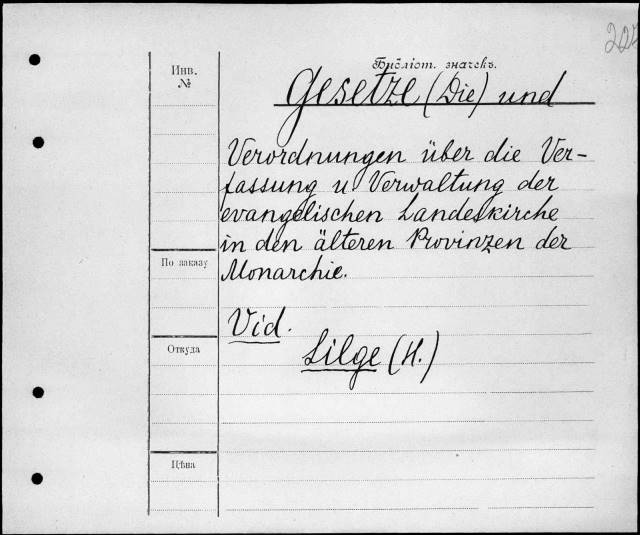 Библіот. значекъ.
Инв.
№
Gesetze (Die) und
Verordnungen über die Ver-
fassung u. Verwaltung der
evangelischen Landeskirche
in den älteren Provinzen der
По заказу
Monarchie.
Vid.
Откуда
Lilge (H.)
Цѣна